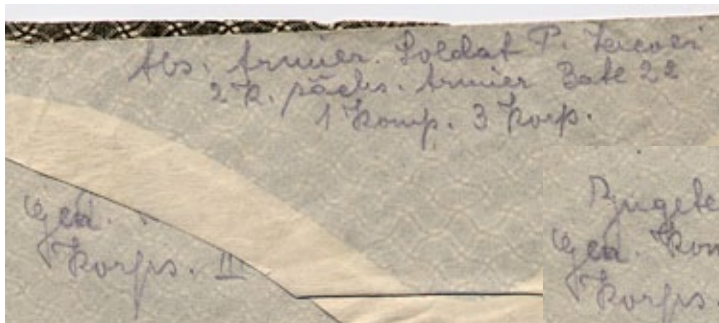 Abs. Armier. Soldat P.
2 K. sächs. Armier Batl 22
1 Komp. 3 Korp.
Gen.
Korps. II
Zugete
Gen. Kom
Korps.